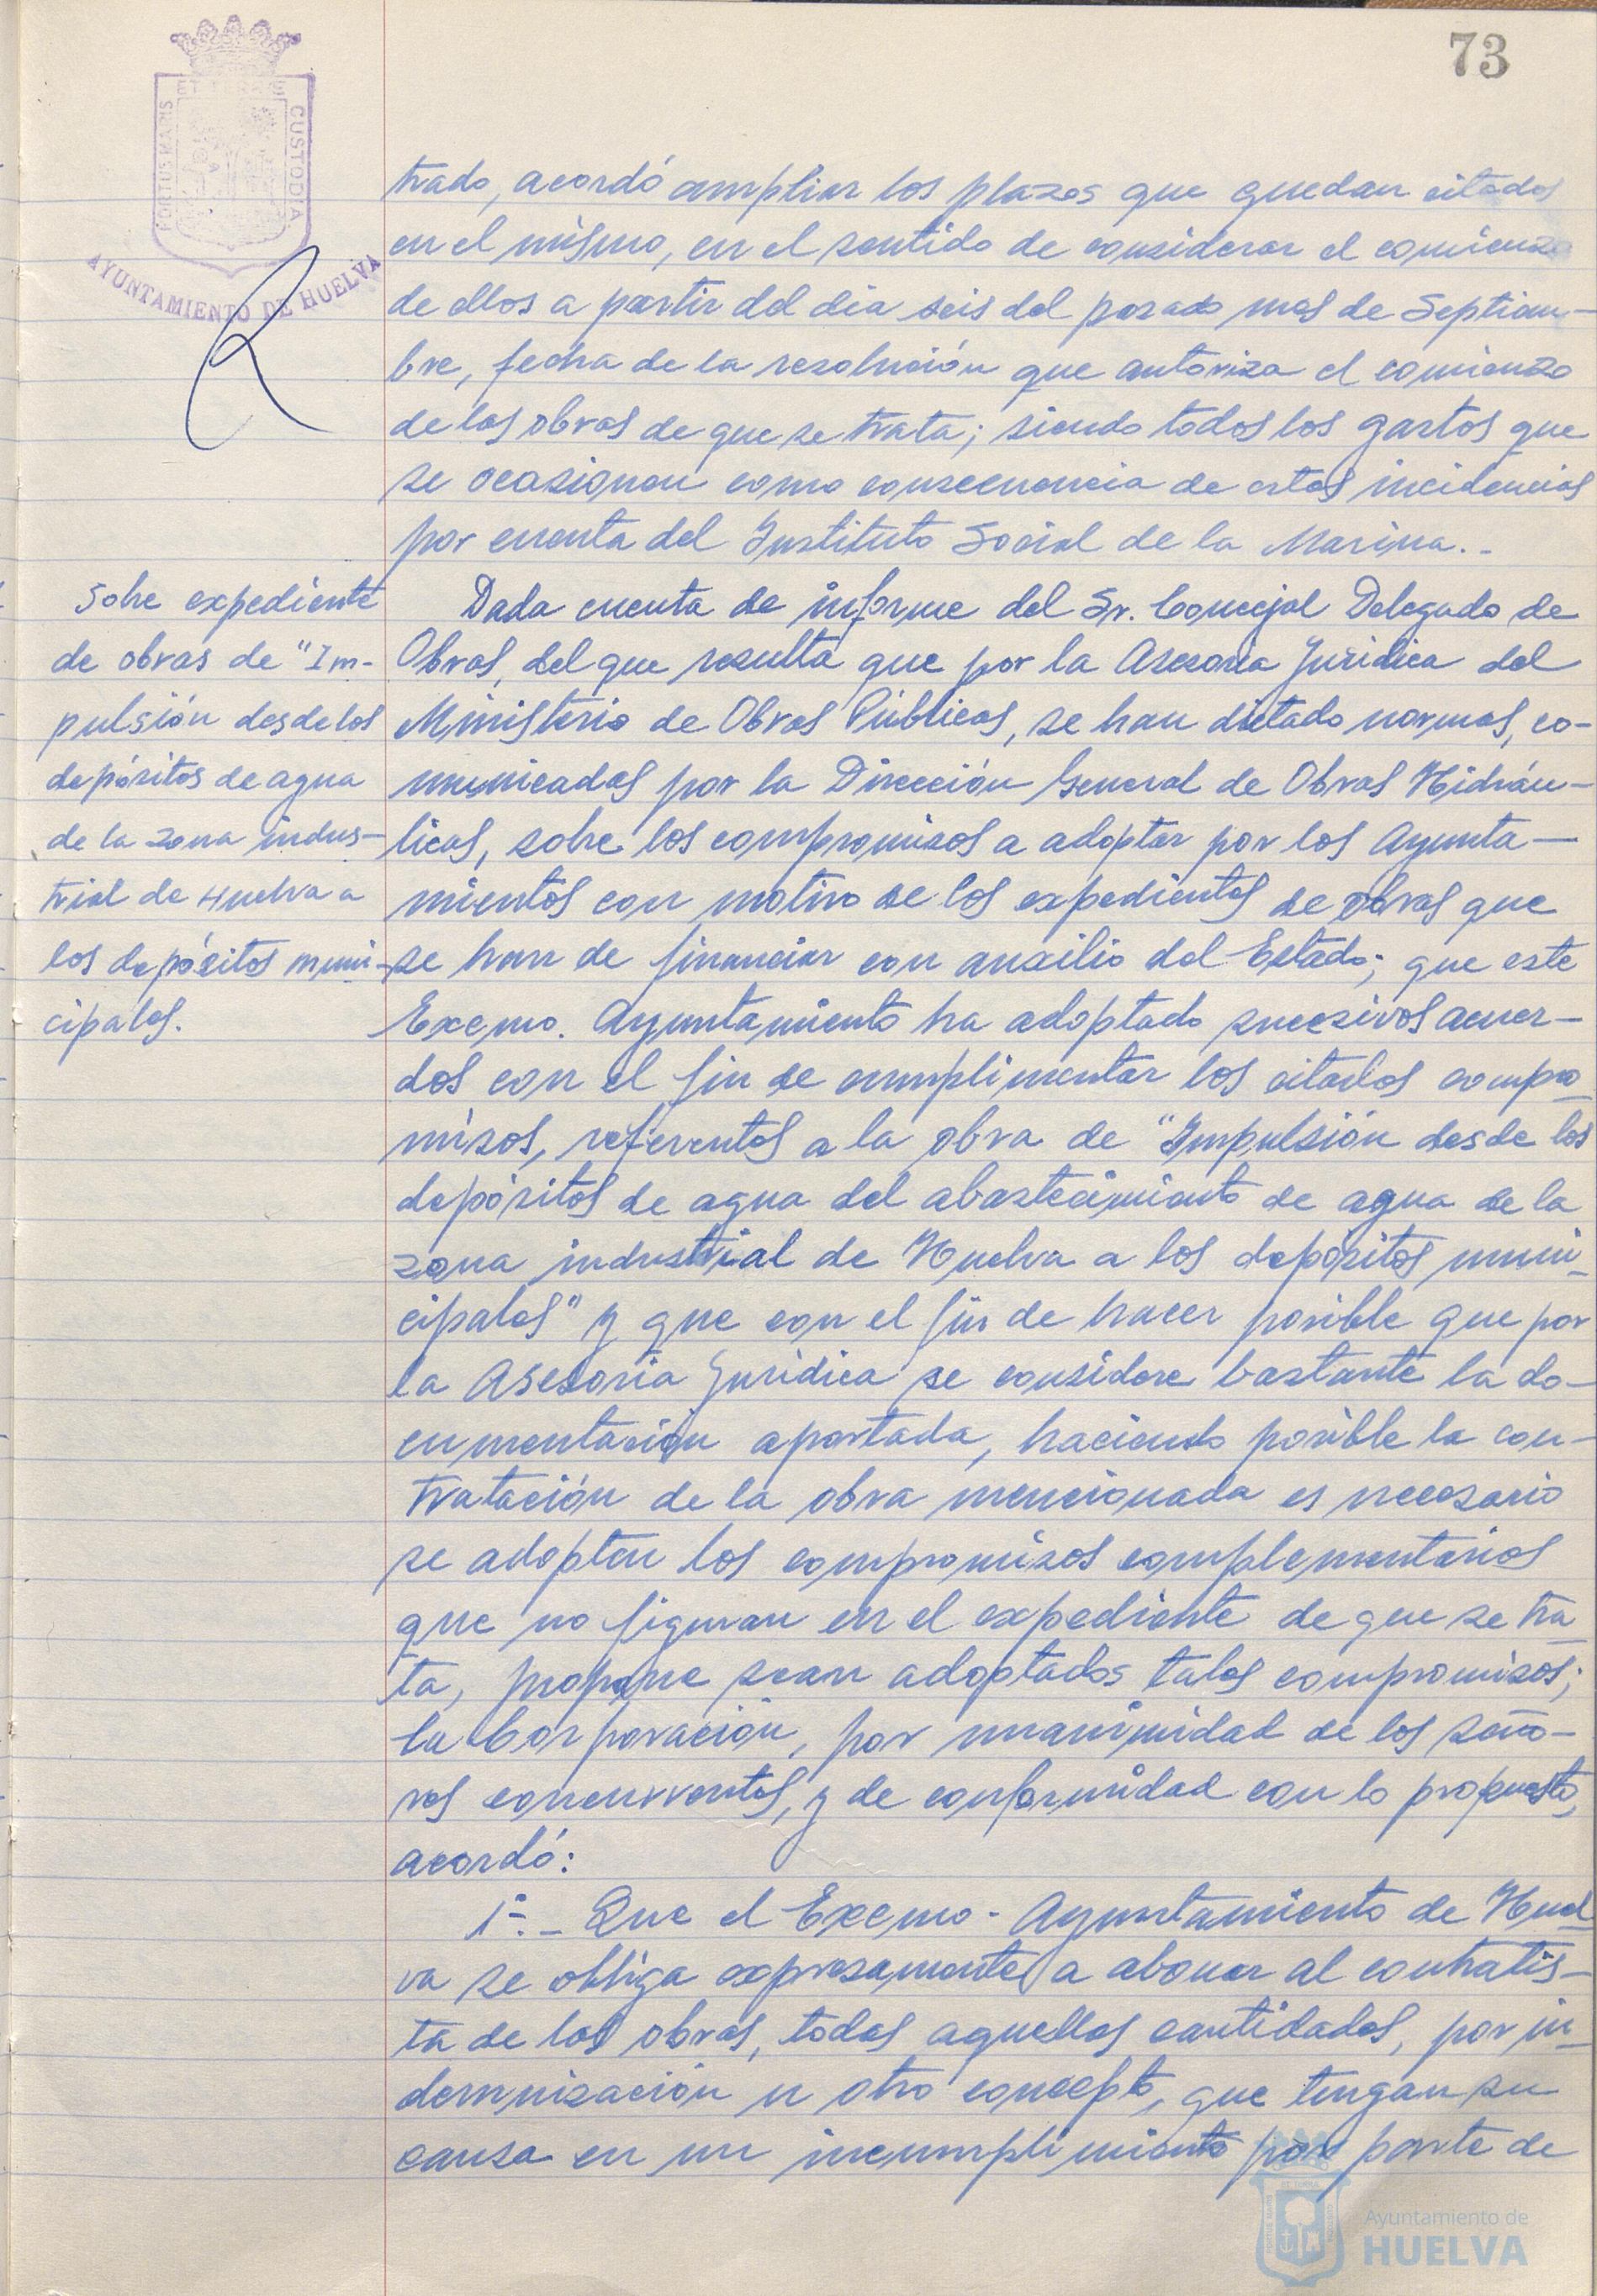 73
PORTUS MARIS ET TERRE CUSTODIA
AYUNTAMIENTO DE HUELVA
trado, acordó ampliar los plazos que quedan citados
en el mismo, en el sentido de considerar el comienzo
de ellos a partir del dia seis del pasado mes de Septiem-
bre, fecha de la resolución que autoriza el comienzo
de las obras de que se trata; siendo todos los gastos que
se ocasionen como consecuencia de estas incidencias
por cuenta del Instituto Social de la Marina.-
Sobre expediente
de obras de "Im-
pulsión desde los
depósitos de agua
de la zona indus-
trial de Huelva a
los depósitos muni-
cipales.
Dada cuenta de informe del Sr. Concejal Delegado de
Obras, del que resulta que por la Asesoria Juridica del
Ministerio de Obras Públicas, se han dictado normas, co-
municadas por la Dirección General de Obras Hidráu-
licas, sobre los compromisos a adoptar por los Ayunta-
mientos con motivo de los expedientes de obras que
se han de financiar con auxilio del Estado; que este
Excmo. Ayuntamiento ha adoptado sucesivos acuer-
dos con el fin de cumplimentar los citados compro-
misos, referentes a la obra de "Impulsión desde los
depósitos de agua del abastecimiento de agua de la
zona industrial de Huelva a los depósitos muni-
cipales" y que con el fin de hacer posible que por
la Asesoria Juridica se considere bastante la do-
cumentación aportada, haciendo posible la con-
tratación de la obra mencionada es necesario
se adopten los compromisos complementarios
que no figuran en el expediente de que se tra-
ta, propone sean adoptados tales compromisos;
la Corporación, por unanimidad de los seño-
res concurrentes, y de conformidad con lo propuesto,
acordó:
1º.- Que el Excmo. Ayuntamiento de Huel-
va se obliga expresamente a abonar al contratis-
ta de las obras, todas aquellas cantidades, por in-
demnización u otro concepto, que tengan su
causa en un incumplimiento por parte de
Ayuntamiento de
HUELVA